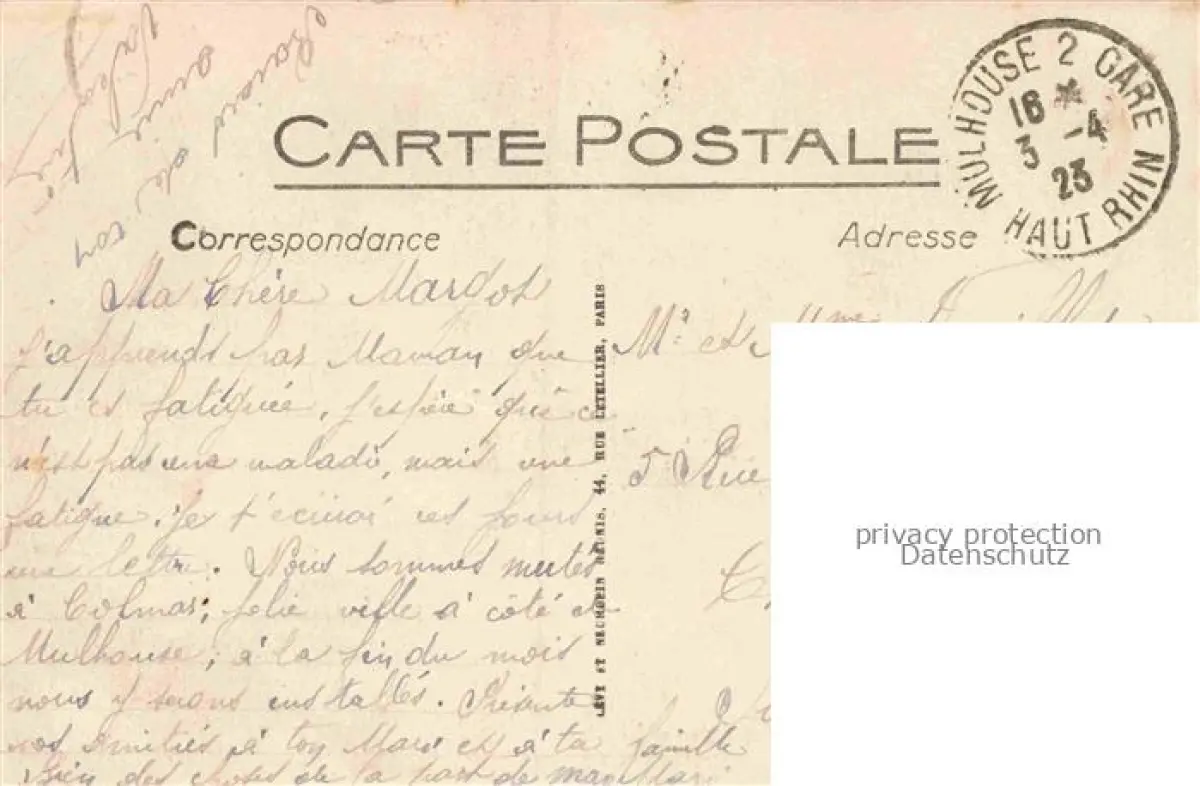 CARTE POSTALE
Correspondance
Adresse
MULHOUSE 2 GARE
18 * -4
3 23
HAUT RHIN
Ma Chère Margot
j'apprends par Maman que
tu es fatiguée, j'espère que ce
n'est pas une maladie, mais une
fatigue. Je t'écrirai ces jours
une lettre. Nous sommes mutés
à Colmar; jolie ville à côté de
Mulhouse; à la fin du mois
nous y serons installés. Présente
nos amitiés à ton Mari et à ta famille
Bien des choses de la part de
LÉVY ET NEURDEIN RÉUNIS, 44, RUE LETELLIER, PARIS
Mr et Mme
5 Rue
Baisers
amie
de ton
privacy protection
Datenschutz